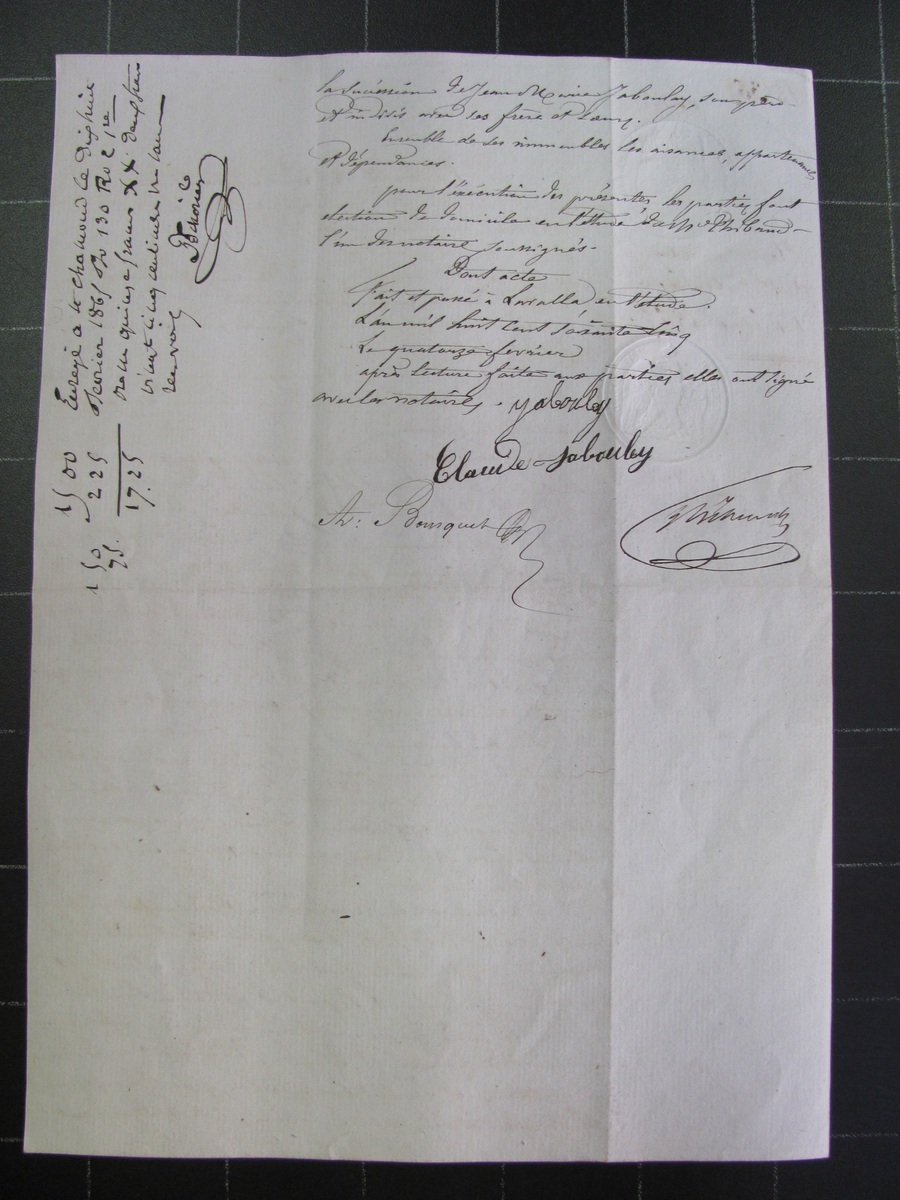 la succession de Jean Marie Jaboulay, son père
et indivis avec ses frère et sœur.
Ensemble de ses immeubles les aisances, appartenances
et dépendances.
pour l'exécution des présentes les parties font
élection de domicile en l'étude de Mᵉ Thibaud
l'un des notaires soussignés.
Dont acte
Fait et passé à Lavalla en l'étude.
L'an mil huit cent soixante cinq
Le quatorze février
après lecture faite aux parties elles ont signé
avec les notaires. Jabouley
Claude Jabouley
Bousquet
Enregé à St Chamond le dix huit
février 1865 fo 130 Ro c 1re
quinze francs
vingt cinq centimes
15 00
2 25
17.25
1 50
75